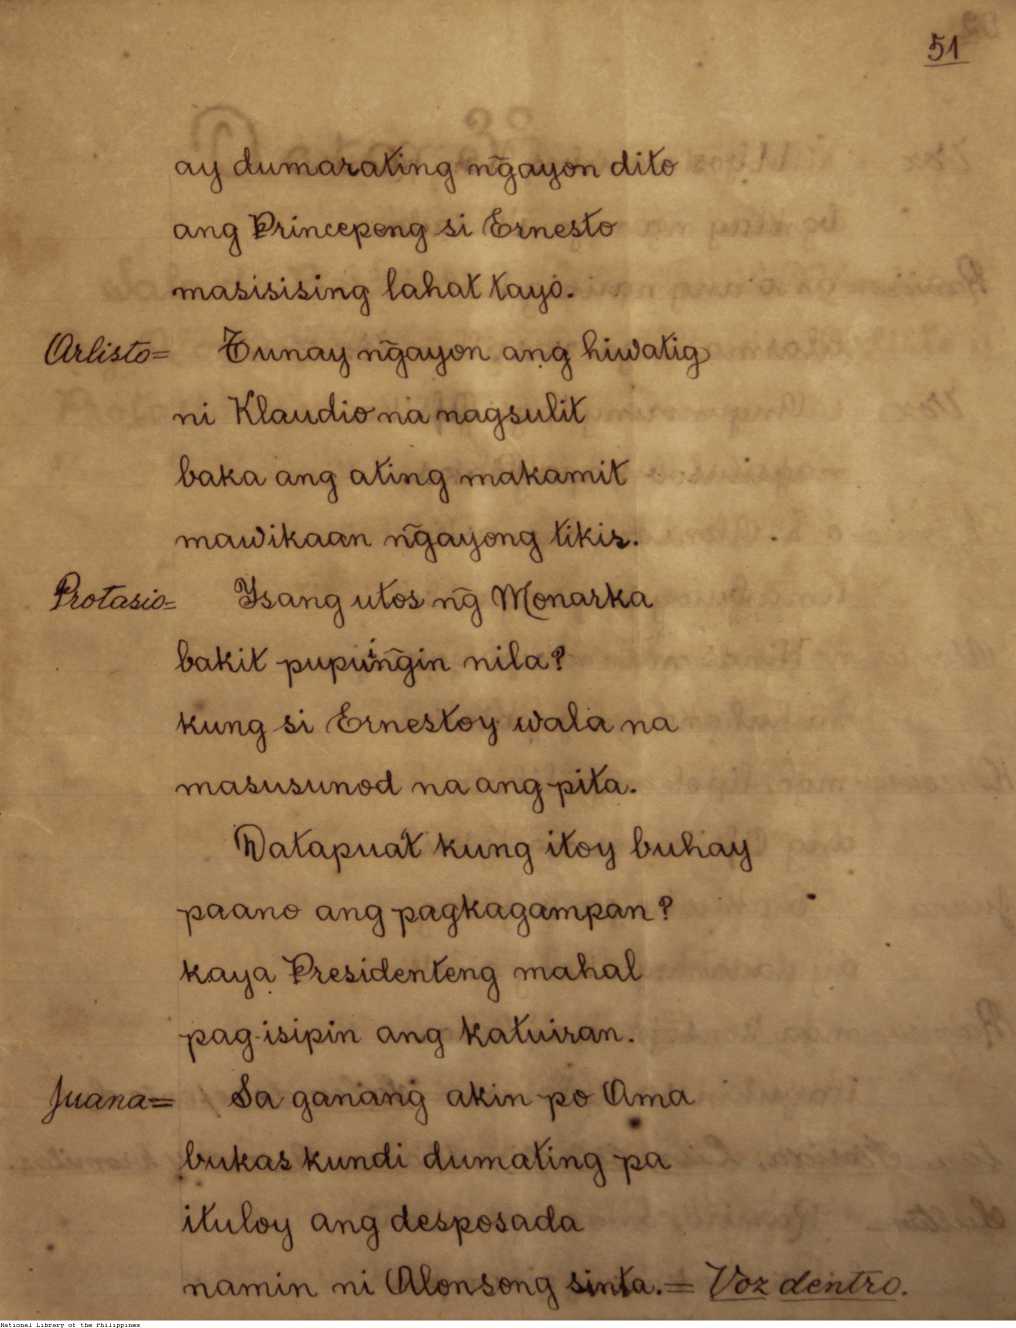 51
ay dumarating n̄gayon dito
ang Princepeng si Ernesto
masisising lahat tayo.
Arlisto= Tunay n̄gayon ang hiwatig
ni Klaudio na nagsulit
baka ang ating makamit
mawikaan n̄gayong tikis.
Protasio= Ysang utos n̄g Monarka
bakit pupuin̄gin nila?
kung si Ernestoy wala na
masusunod na ang pita.
Datapua't kung itoy buhay
paano ang pagkagampan?
kaya Presidenteng mahal
pag-isipin ang katuiran.
Juana= Sa ganang akin po Ama
bukas kundi dumating pa
ituloy ang desposada
namin ni Alonsong sinta.= Voz dentro.
National Library of the Philippines